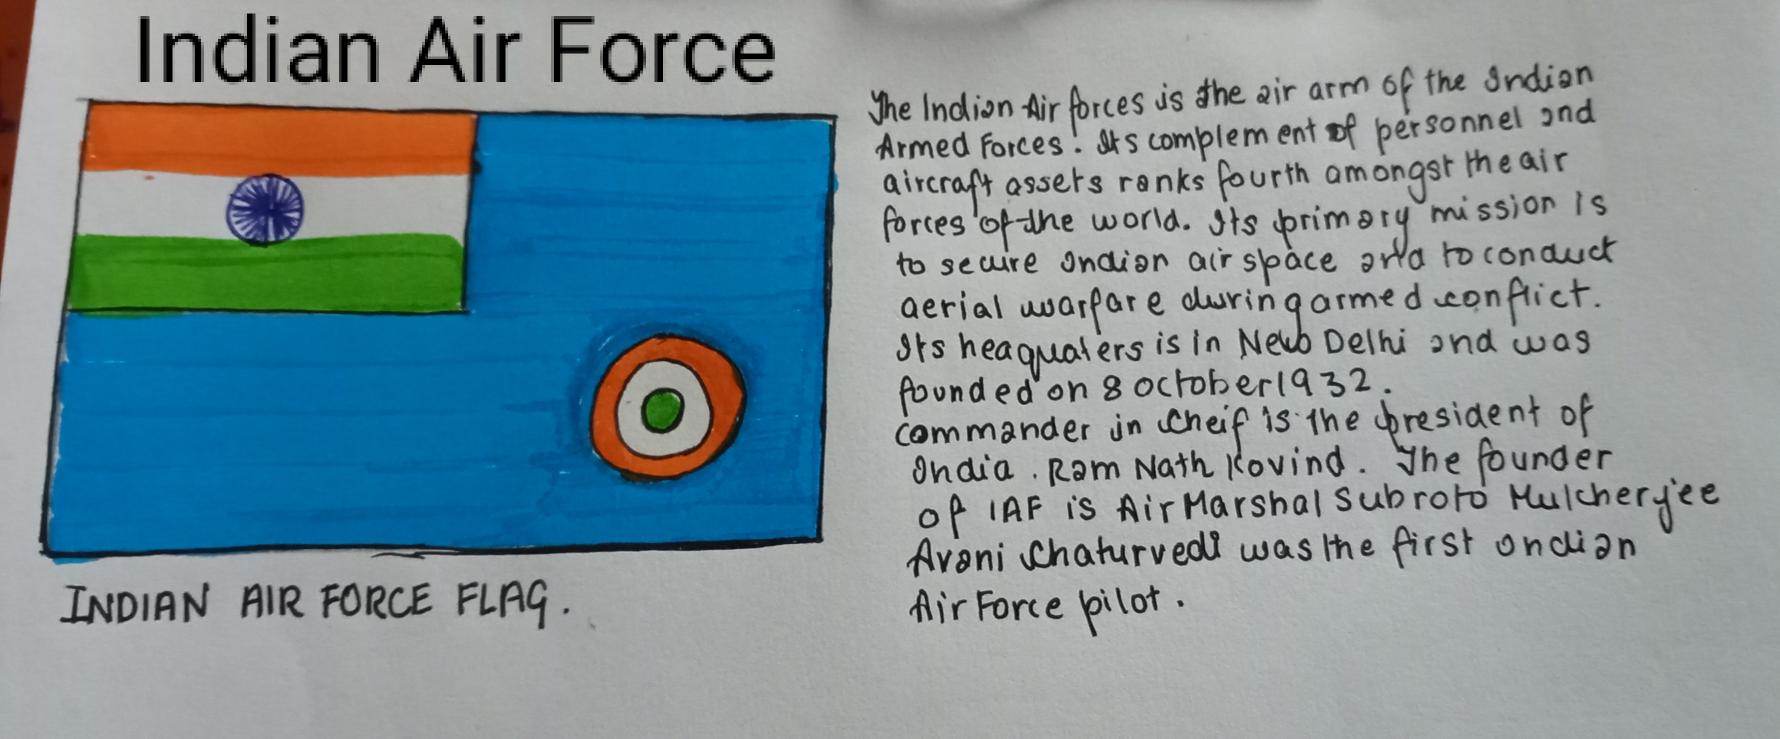 Indian Air Force
The Indian Air forces is the air arm of the Indian
Armed Forces. Its complement of personnel and
aircraft assets ranks fourth amongst the air
forces of the world. Its primary mission is
to secure Indian air space and to conduct
aerial warfare during armed conflict.
Its heaquaters is in New Delhi and was
founded on 8 october 1932.
commander in cheif is the president of
India. Ram Nath Kovind. The founder
of IAF is Air Marshal Subroto Mulcherjee
Avani Chaturvedi was the first Indian
Air Force pilot.
INDIAN AIR FORCE FLAG.